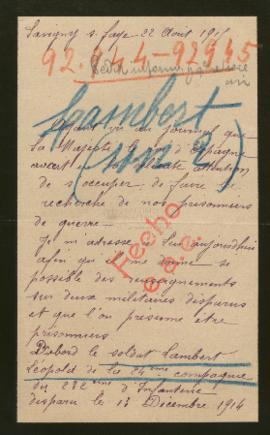 Savigny s. faye 22 Août 1915
92.944-92945
Lambert
(un 2)
Ayant vu au journal que
Sa Majesté le d'Espagne
avait la attention
de s'occuper de faire
recherche de nos prisonniers
de guerre
Fecho
a.a.c.
Je m'adresse à Lui aujourd'hui
afin qu'il me donne si
possible des renseignements
sur deux militaires disparus
et que l'on présume être
prisonniers
D'abord le soldat Lambert
Léopold de la 24ème compagnie
du 282ème d'Infanterie
disparu le 13 Décembre 1914